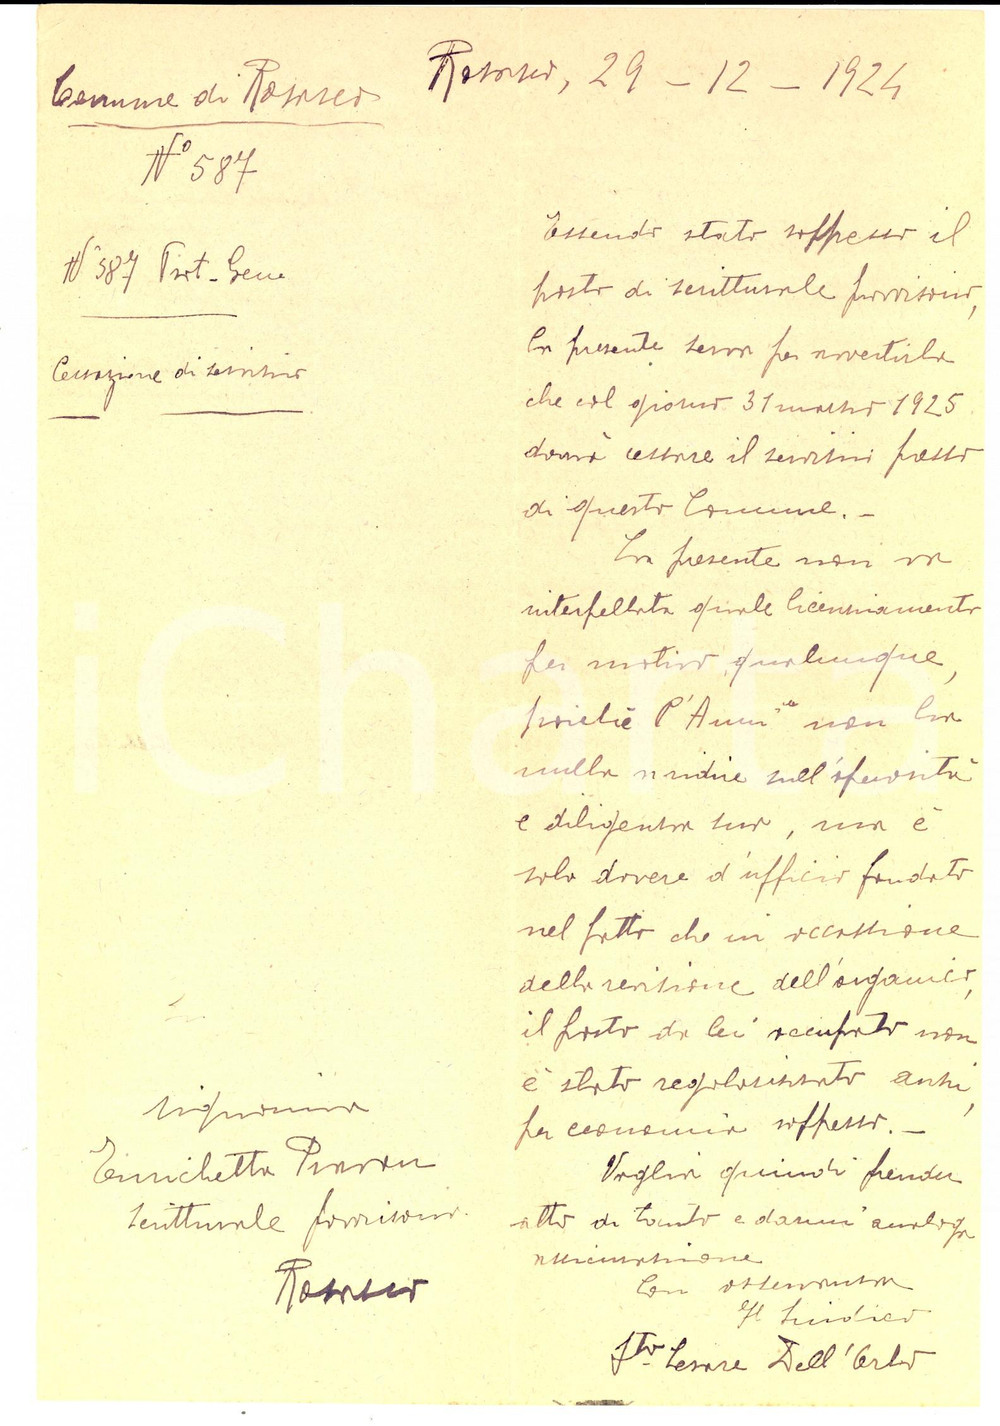 Comune di Rosasco
N° 587
N° 587 Prot. Gene
Cessazione di servizio
Rosasco, 29 - 12 - 1924
Essendo stato soppesso il
posto di scritturale provvisorio,
la presente serva per avvertirla
che col giorno 31 marzo 1925
dovrà cessare il servizio presso
di questo Comune. -
La presente non va
interpellata quale licenziamento
per motivo qualunque,
poichè l'Amm.ne non ha
nulla a ridire sull'operosità
e diligenza sua, ma è
solo dovere d'ufficio fondato
nel fatto che in occassione
della revisione dell'organico,
il posto da lei occupato non
è stato regolarizzato anzi,
per economia soppesso. -
Voglia quindi prender
atto di tanto e darmi analoga
assicurazione
Con osservanza
Il Sindaco
F.to Cesare Dell'Orbo
Signorina
Enrichetta
scritturale provvisoria
Rosasco
iCharta